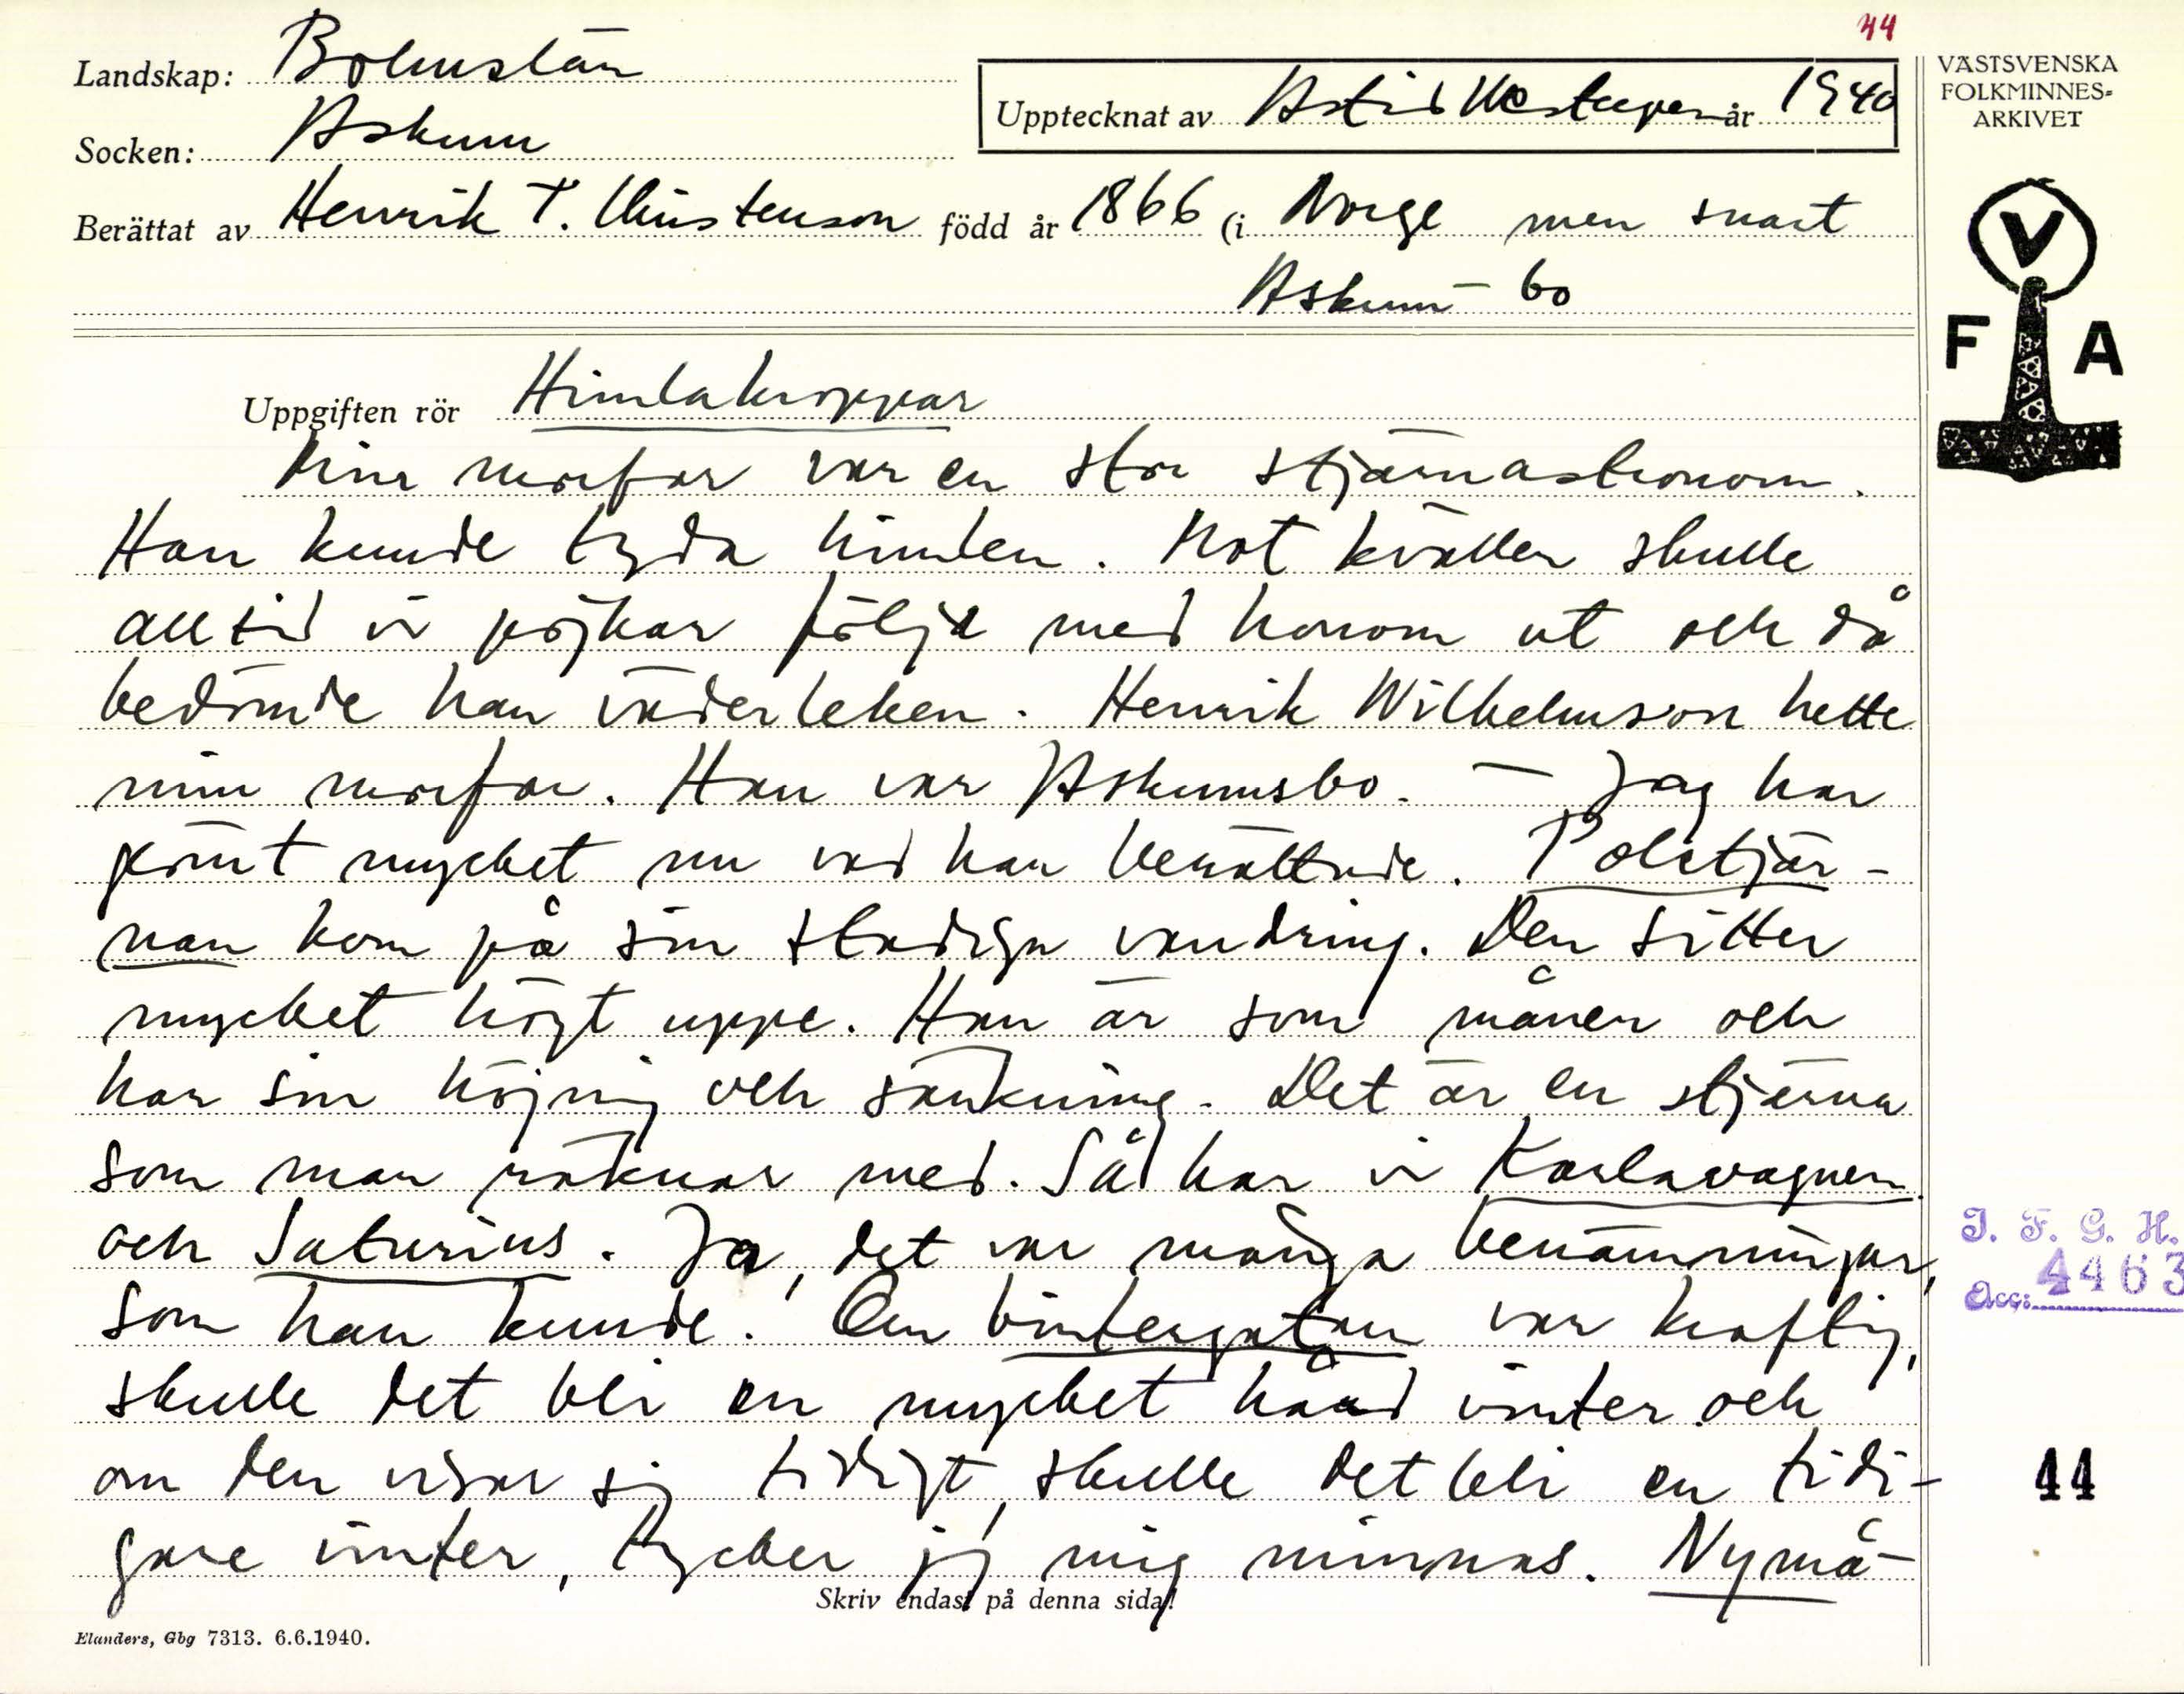 44
Landskap: Bohuslän
Socken: Askum
Upptecknat av Astrid år 1940
Berättat av Henrik T. Christenson född år 1866 (i Norge men snart
Askum-bo
Uppgiften rör Himlakroppar
Min morfar var en stor stjärnastronom.
Han kunde tyda himlen. Mot kvällen skulle
alltid vi pojkar följa med honom ut och då
bedömde han väderleken. Henrik Wilhelmson hette
min morfar. Han var Askumsbo. – Jag har
glömt mycket nu vad han berättade. Polstjär-
nan kom på sin stadiga vandring. Den sitter
mycket högt uppe. Han är som månen och
har sin höjning och sänkning. Det är en stjärna
som man räknar med. Så har vi Karlavagnen
och Saturius. Ja, det var många benämningar,
som han kunde. Om vintergatan var kraftig,
skulle det bli en mycket hård vinter och
om den visar sig tidigt, skulle det bli en tidi-
gare vinter, tycker jag mig minnas. Nymå-
Skriv endast på denna sida!
Elanders, Gbg 7313. 6.6.1940.
VÄSTSVENSKA
FOLKMINNES-
ARKIVET
V
F A
I. F. G. H.
Acc: 4463
44